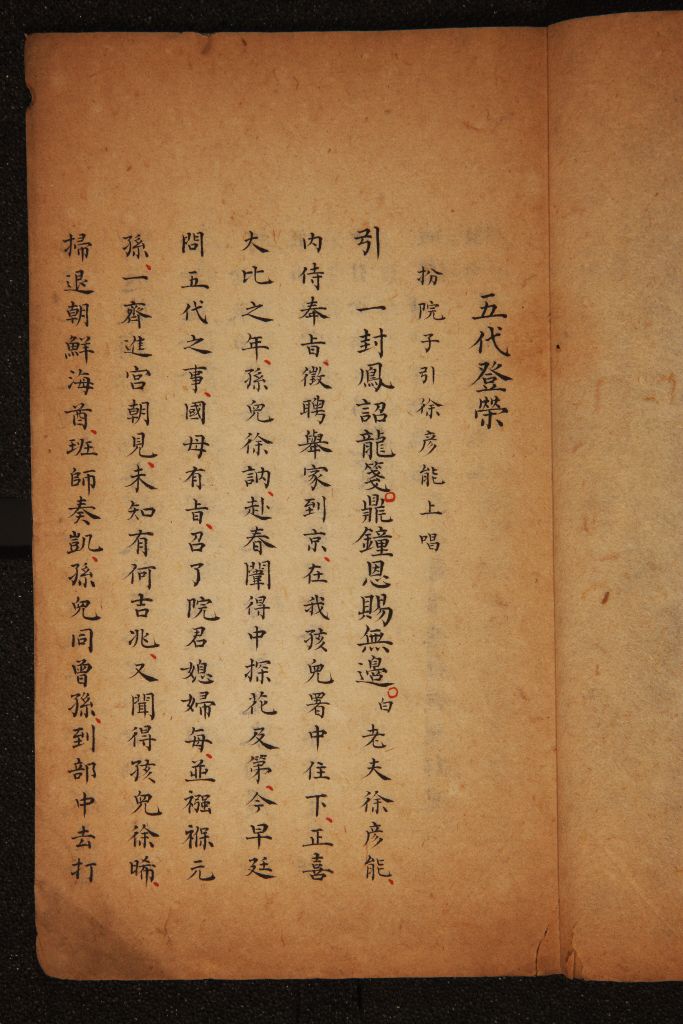 五代登榮
扮院子引徐彦能上唱
引 一封鳳詔龍箋。鼎鐘恩賜無邊。白老夫徐彦能、
内侍奉旨、徵聘舉家到京、在我孩兒署中住下、正喜
大比之年、孫兒徐訥、赴春闈得中探花及第、今早廷
問五代之事、國母有旨、召了院君媳婦每、並襁褓元
孫、一齊進宮朝見、未知有何吉兆、又聞得孩兒徐晞、
掃退朝鮮海酋、班師奏凱、孫兒同曾孫、到部中去打